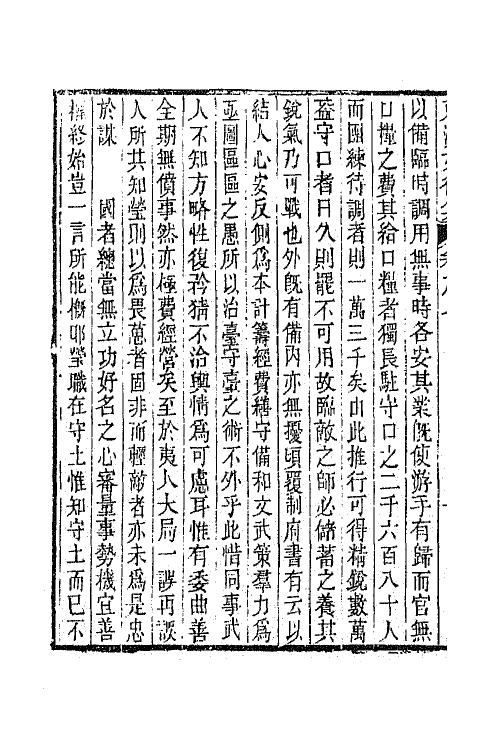 以備臨時調用無事時各安其業旣使游手有歸而官無
口糧之費其給口糧者獨長駐守口之二千六百八十人
而團練待調者則一萬三千矣由此推行可得精銳數萬
蓋守口者日久則罷不可用故臨敵之師必儲蓄之養其
銳氣乃可戰也外旣有備內亦無擾頃覆制府書有云以
結人心安反側爲本計籌經費繕守備和文武策羣力爲
亟圖區區之愚所以治臺守臺之術不外乎此惜同事武
人不知方略性復矜猜不洽輿情爲可慮耳惟有委曲善
全期無僨事然亦極費經營矣至於夷人大局一誤再誤
人所共知瑩則以爲畏葸者固非而輕敵者亦未爲是忠
於謀　國者總當無立功好名之心審量事勢機宜善
權終始豈一言所能槪耶瑩職在守土惟知守土而已不